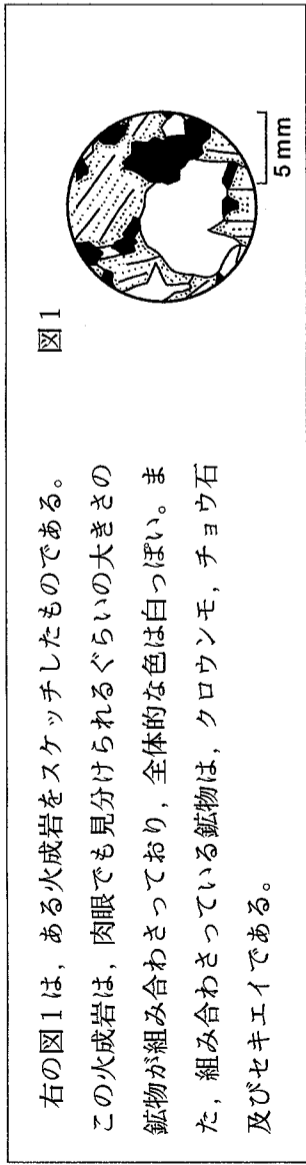 右の図1は，ある火成岩をスケッチしたものである。
この火成岩は，肉眼でも見分けられるぐらいの大きさの
鉱物が組み合わさっており，全体的な色は白っぽい。ま
た，組み合わさっている鉱物は，クロウンモ，チョウ石
及びセキエイである。
図1
5 mm